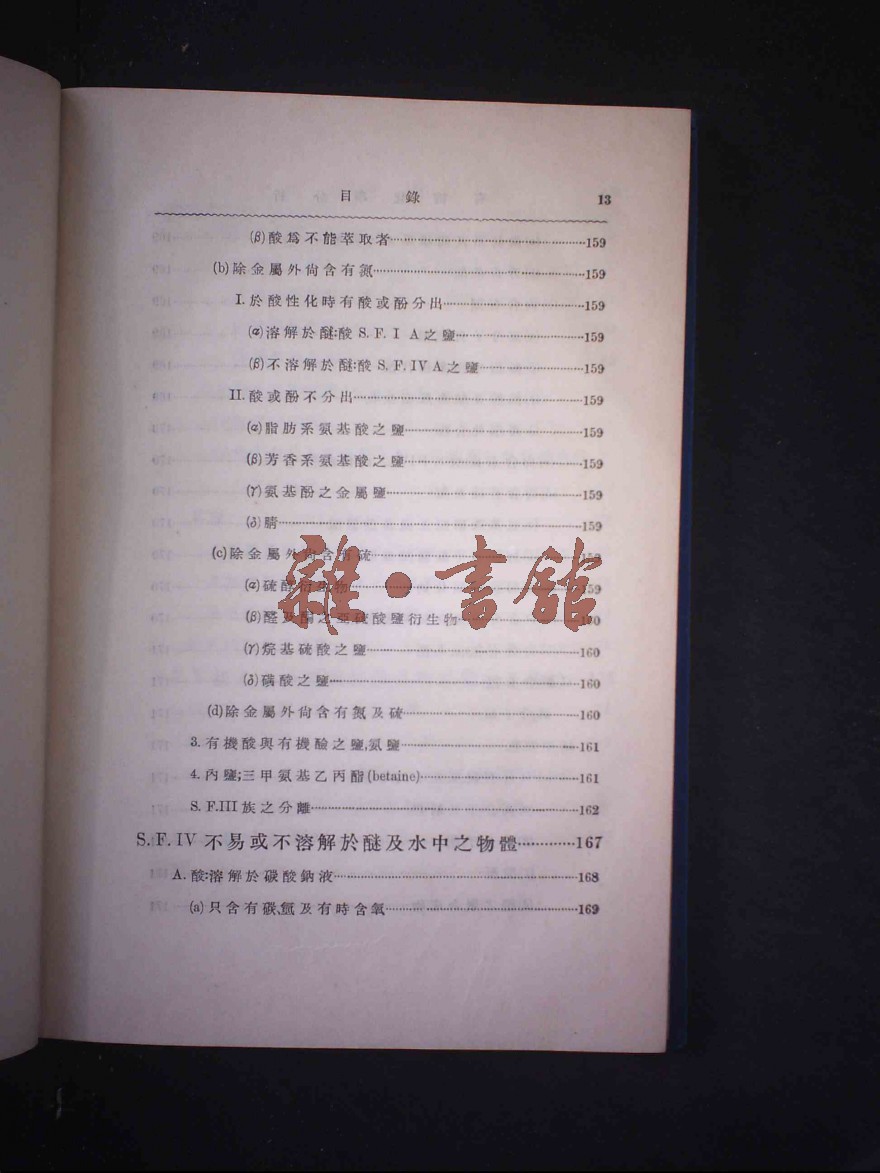 目 錄 13
(β)酸爲不能萃取者 159
(b)除金屬外尙含有氮 159
I.於酸性化時有酸或酚分出 159
(α)溶解於醚:酸 S. F. I A之鹽 159
(β)不溶解於醚:酸 S. F. IV A之鹽 159
II.酸或酚不分出 159
(α)脂肪系氨基酸之鹽 159
(β)芳香系氨基酸之鹽 159
(γ)氨基酚之金屬鹽 159
(δ)腈 159
(c)除金屬外尙含有硫 159
(α)硫醇衍生物 159
(β)醛及酮之亞硫酸鹽衍生物
(γ)烷基硫酸之鹽 160
(δ)磺酸之鹽 160
(d)除金屬外尙含有氮及硫 160
3.有機酸與有機鹼之鹽,氨鹽 161
4.內鹽;三甲氨基乙丙酯(betaine) 161
S. F.III 族之分離 162
S. F. IV 不易或不溶解於醚及水中之物體 167
A.酸:溶解於碳酸鈉液 168
(a)只含有碳,氫及有時含氧 169
雜·書館